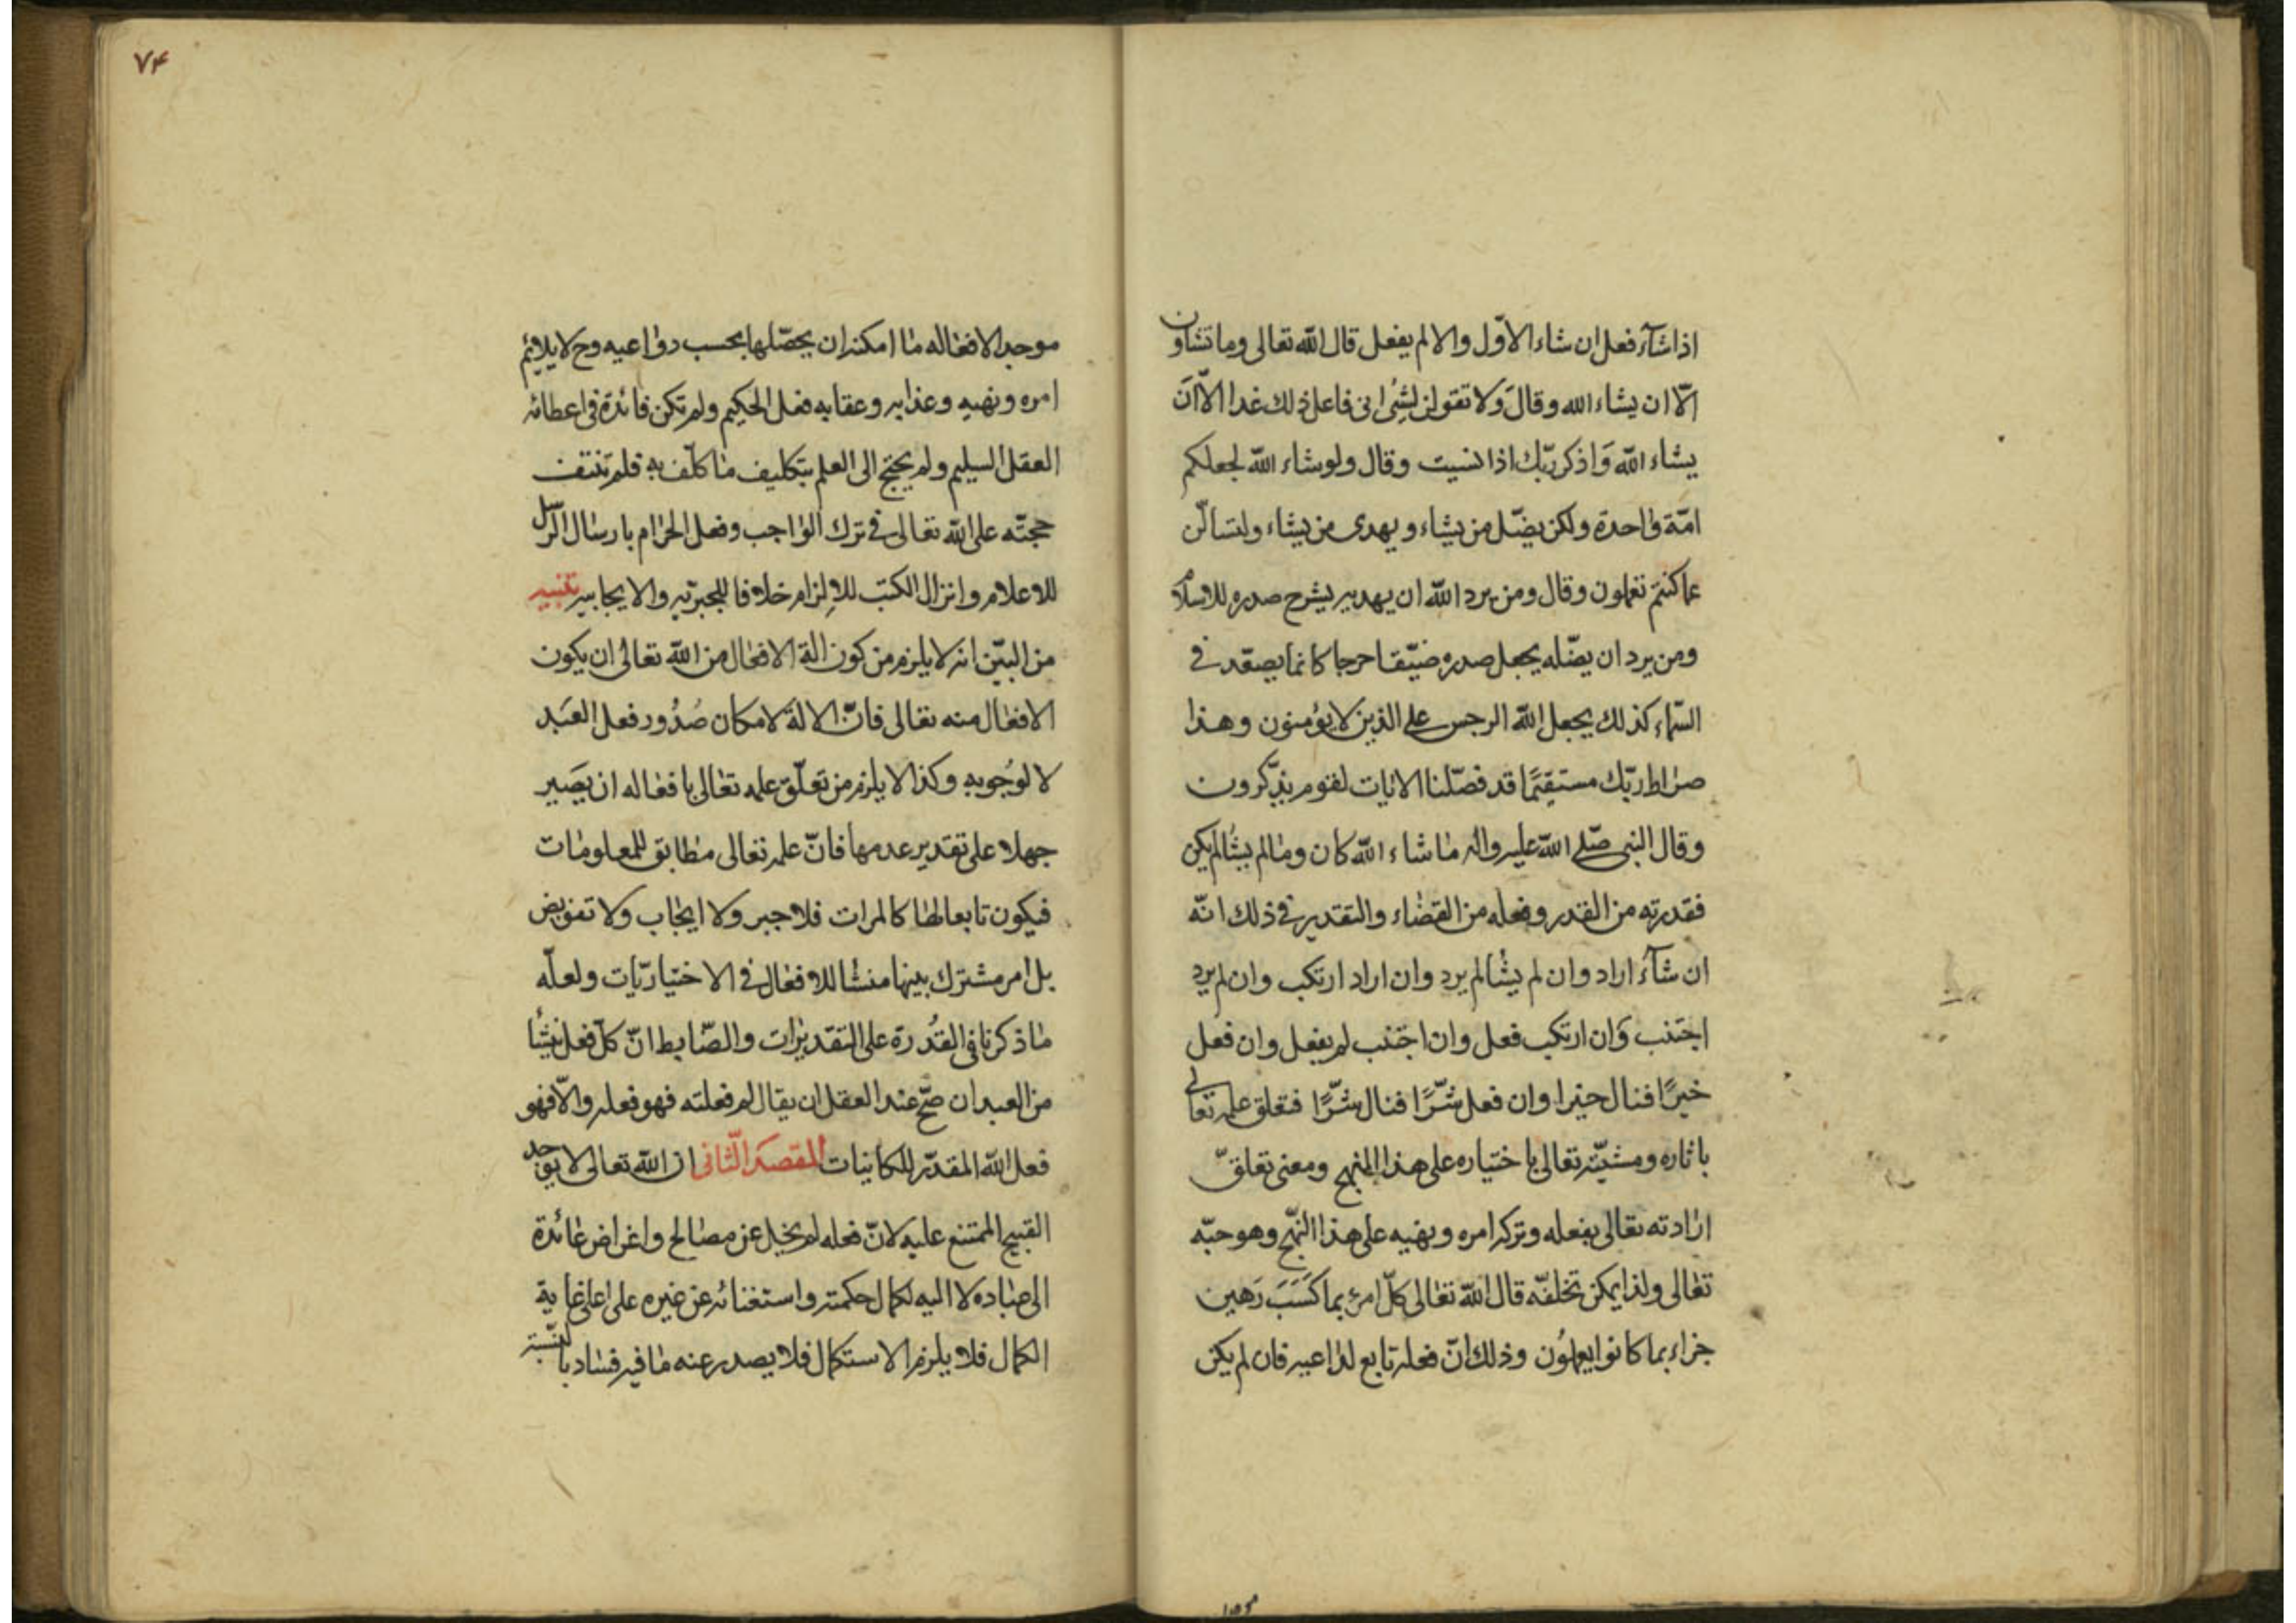 اذا شآء فعل ان شاء الاوّل والا لم يفعل قال الله تعالى وما تشاون
الّا ان يشاء الله وقال وَلا تقولن لِشئ انى فاعل ذلك غدا الّا اَن
يشاء الله وَاذكر ربّك اذا نسيت وقال ولو شاء الله لجعلكم
امّة واحدة ولكن يضّل من يشاء ويهدى من يشاء ولتسألّن
عما كنتم تعلمون وقال ومن يرد الله ان يهديه يشرح صدره للاسلام
ومن يرد ان يضّله يجعل صدره ضيّقا حرجا كانما يصعّد فى
السّماء كذلك يجعل الله الرجس على الذين لا يؤمنون وهذا
صراط ربّك مستقيمًا قد فصّلنا الايات لقوم يذّكرون
وقال النبى صلّى الله عليه واله ما شاء الله كان وما لم يشأ لم يكن
فقدرته من القدر وفعله من القضاء والتقدير فى ذلك انّه
ان شآء اراد وان لم يشأ لم يرد وان اراد ارتكب وان لم يرد
اجتنب وَان ارتكب فعل وان اجتنب لم يفعل وان فعل
خيرًا فنال خيرا وان فعل شرًّا فنال شرًّا فتعلق علمه تعالى
باثاره ومشيّته تعالى باختياره على هذا المنهج ومعنى تعلقّ
ارادته تعالى بفعله وتركه امره ونهيه على هذا النهّج وهو حبّه
تعالى ولذا يمكن تخلفّه قال الله تعالى كلّ امرئ بما كَسَبَ رَهين
جزاء بما كانوا يعملوُن وذلك انّ فعله تابع لداعيه فان لم يكن
٧۴
موجد الافعاله ما امكنه ان يحصّلها بحسب دواعيه وح لا يلايم
امره ونهيه وعذابه وعقابه فعل الحكيم ولم تكن فائدة فى اعطائه
العقل السليم ولم يحتج الى العلم بتكليف ما كلّف به فلم تنتف
حجتّه على الله تعالى فى ترك الواجب وفعل الحرام بارسال الرّسل
للاعلام وانزال الكتب للالزام خلافا للجبريّه والايجابيه تنبيه
من البيّن انه لا يلزم من كون الة الافعال من الله تعالى ان يكون
الافعال منه تعالى فانّ الالة لامكان صُدُور فعل العَبَد
لا لوجُوبه وكذا لا يلزم من تعلّق علمه تعالى بافعاله ان يَصَير
جهلا على تقدير عدمها فانّ علمه تعالى مطابق للمعلومات
فيكون تابعا لها كالمرات فلا جبر ولا ايجاب ولا تفويض
بل امر مشترك بينها منشأ للافعال فى الاختياريّات ولعلّه
ما ذكرنا فى القُدُرة على التقديرات والضّابط انّ كلّ فعل نشأ
من العبد ان صحّ عند العقل ان يقال لم فعلته فهو فعله والّا فهو
فعل الله المقدّر للكاينات المقصد الثّانى ان الله تعالى لا يوجد
القبيح الممتنع عليه لانّ فعله لم يخل عن مصالح واغراض عائدة
الى عباده لا اليه لكمال حكمته واستغنائه عن غيره على اعلى غاية
الكمال فلا يلزم الاستكمال فلا يصدر عنه ما فيه فساد بالنسّبة